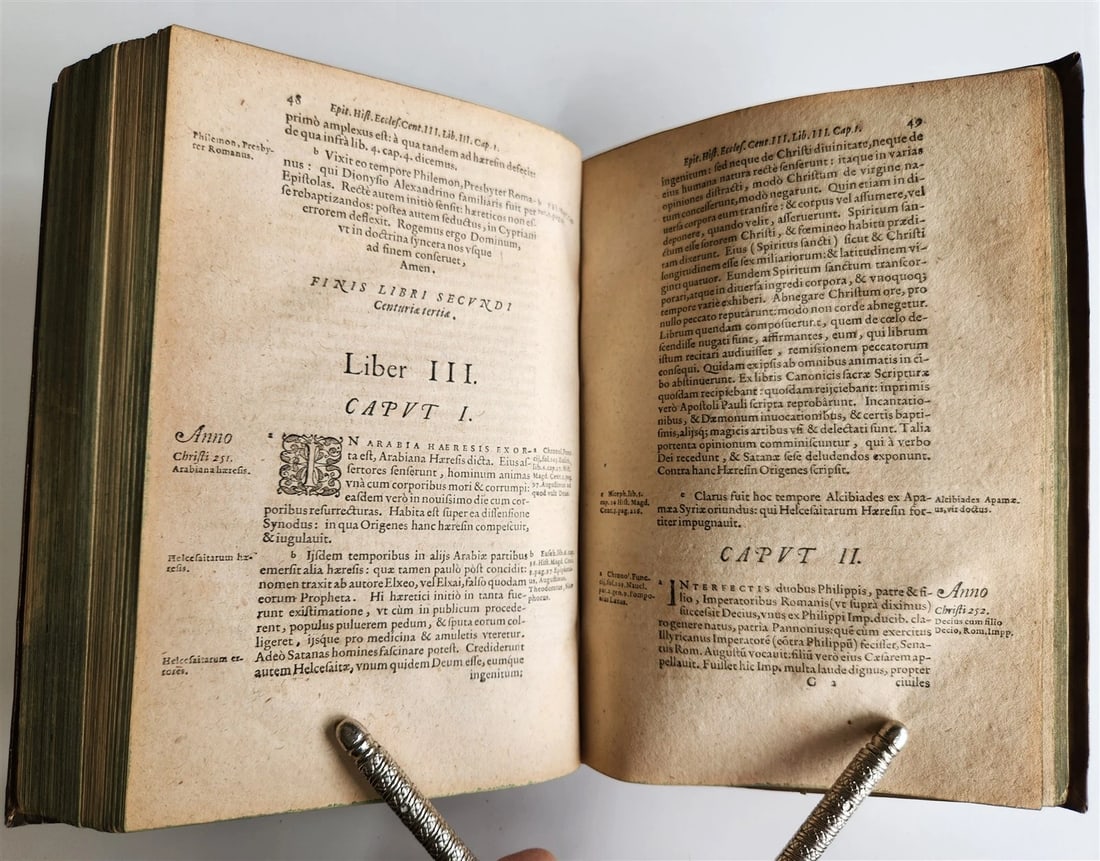 48
Epit. Hist. Eccles. Cent. III. Lib. III. Cap. 1.
primò amplexus est: à qua tandem ad hæresin defecit:
de qua infrà lib. 4. cap. 4. dicemus.
Philemon, Presby-
ter Romanus.
b Vixit eo tempore Philemon, Presbyter Roma-
nus: qui Dionysio Alexandrino familiaris fuit per
Epistolas. Rectè autem initiò sensit: hæreticos non es-
se rebaptizandos: postea autem seductus, in Cypriani
errorem deflexit. Rogemus ergo Dominum,
vt in doctrina syncera nos vsque
ad finem conseruet,
Amen.
FINIS LIBRI SECVNDI
Centuriæ tertiæ.
Liber III.
CAPVT I.
Anno
Christi 251.
Arabiana hæresis.
a IN ARABIA HÆRESIS EXOR-
ta est, Arabiana Hæresis dicta. Eius as-
sertores senserunt, hominum animas
vnà cum corporibus mori & corrumpi:
easdem verò in nouissimo die cum cor-
poribus resurrecturas. Habita est super ea dissensione
Synodus: in qua Origenes hanc hæresin compescuit,
& iugulauit.
Helcesaitarum hæ-
resis.
b Ijsdem temporibus in alijs Arabiæ partibus
emersit alia hæresis: quæ tamen paulò pòst concidit:
nomen traxit ab autore Elxeo, vel Elxai, falso quodam
eorum Propheta. Hi hæretici initiò in tanta fue-
runt existimatione, vt cùm in publicum procede-
rent, populus puluerem pedum, & sputa eorum col-
ligeret, ijsque pro medicina & amuletis vteretur.
Adeò Satanas homines fascinare potest. Crediderunt
Helcesaitarum er-
rores.
autem Helcesaitæ, vnum quidem Deum esse, eumque
ingenitum;
49
Epit. Hist. Eccles. Cent. III. Lib. III. Cap. 1.
ingenitum: sed neque de Christi diuinitate, neque de
eius humana natura rectè senserunt: itaque in varias
opiniones distracti, modò Christum de virgine na-
tum concesserunt, modò negarunt. Quin etiam in di-
uersa corpora eum transire: & corpus vel assumere, vel
deponere, quando velit, asseruerunt. Spiritum san-
ctum esse sororem Christi, & fœmineo habitu prædi-
tam dixerunt. Eius (Spiritus sancti) sicut & Christi
longitudinem esse sex miliariorum: & latitudinem vi-
ginti quatuor. Eundem Spiritum sanctum transcor-
porari, atque in diuersa ingredi corpora, & vnoquoq;
tempore variè exhiberi. Abnegare Christum ore, pro
nullo peccato reputârunt: modo non corde abnegetur.
Librum quendam composuerunt, quem de cœlo de-
scendisse nugati sunt, affirmantes, eum, qui librum
istum recitari audiuisset, remissionem peccatorum
consequi. Quidam ex ipsis ab omnibus animatis in ci-
bo abstinuerunt. Ex libris Canonicis sacræ Scripturæ
quosdam recipiebant: quosdam reijciebant: inprimis
verò Apostoli Pauli scripta reprobârunt. Incantatio-
nibus, & Dæmonum inuocationibus, & certis baptis-
mis, alijsq; magicis artibus vsi & delectati sunt. Talia
portenta opinionum comminiscuntur, qui à verbo
Dei recedunt, & Satanæ sese deludendos exponunt.
Contra hanc Hæresin Origenes scripsit.
c Niceph. lib. 5.
cap. 24 Hist. Magd.
Cent. 3. pag.
c Clarus fuit hoc tempore Alcibiades ex Apa-
mæa Syriæ oriundus: qui Helcesaitarum Hæresin for-
titer impugnauit.
Alcibiades Apamæ-
us, vir doctus.
CAPVT II.
a INTERFECTIS duobus Philippis, patre & fi-
lio, Imperatoribus Romanis (vt suprà diximus)
successit Decius, vnus ex Philippi Imp. ducib. cla-
ro genere natus, patria Pannonius: quē cum exercitus
Illyricanus Imperatorē (cōtra Philippū) fecisset, Sena-
tus Rom. Augustū vocauit: filiū verò eius Cæsarem ap-
pellauit. Fuisset hic Imp. multa laude dignus, propter
Anno
Christi 252.
Decius cum filio
Decio, Rom. Impp.
G 2
ciuiles